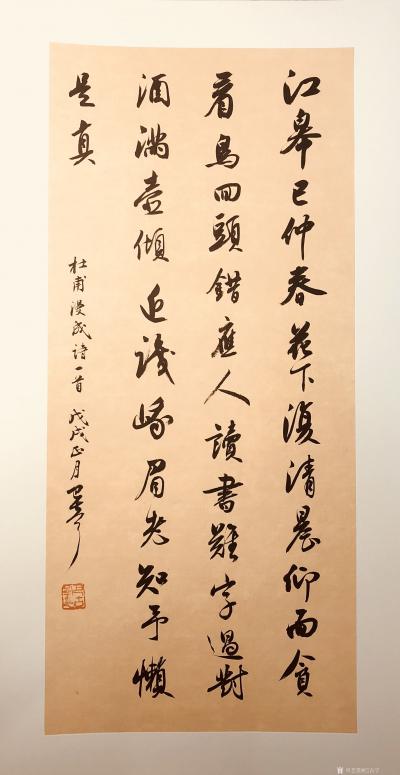 江皋已仲春花下復清晨仰面貪
看鳥回頭錯應人讀書難字過對
酒滿壺傾近識峨眉老知予懶
是真
杜甫漫成詩一首 戊戌正月